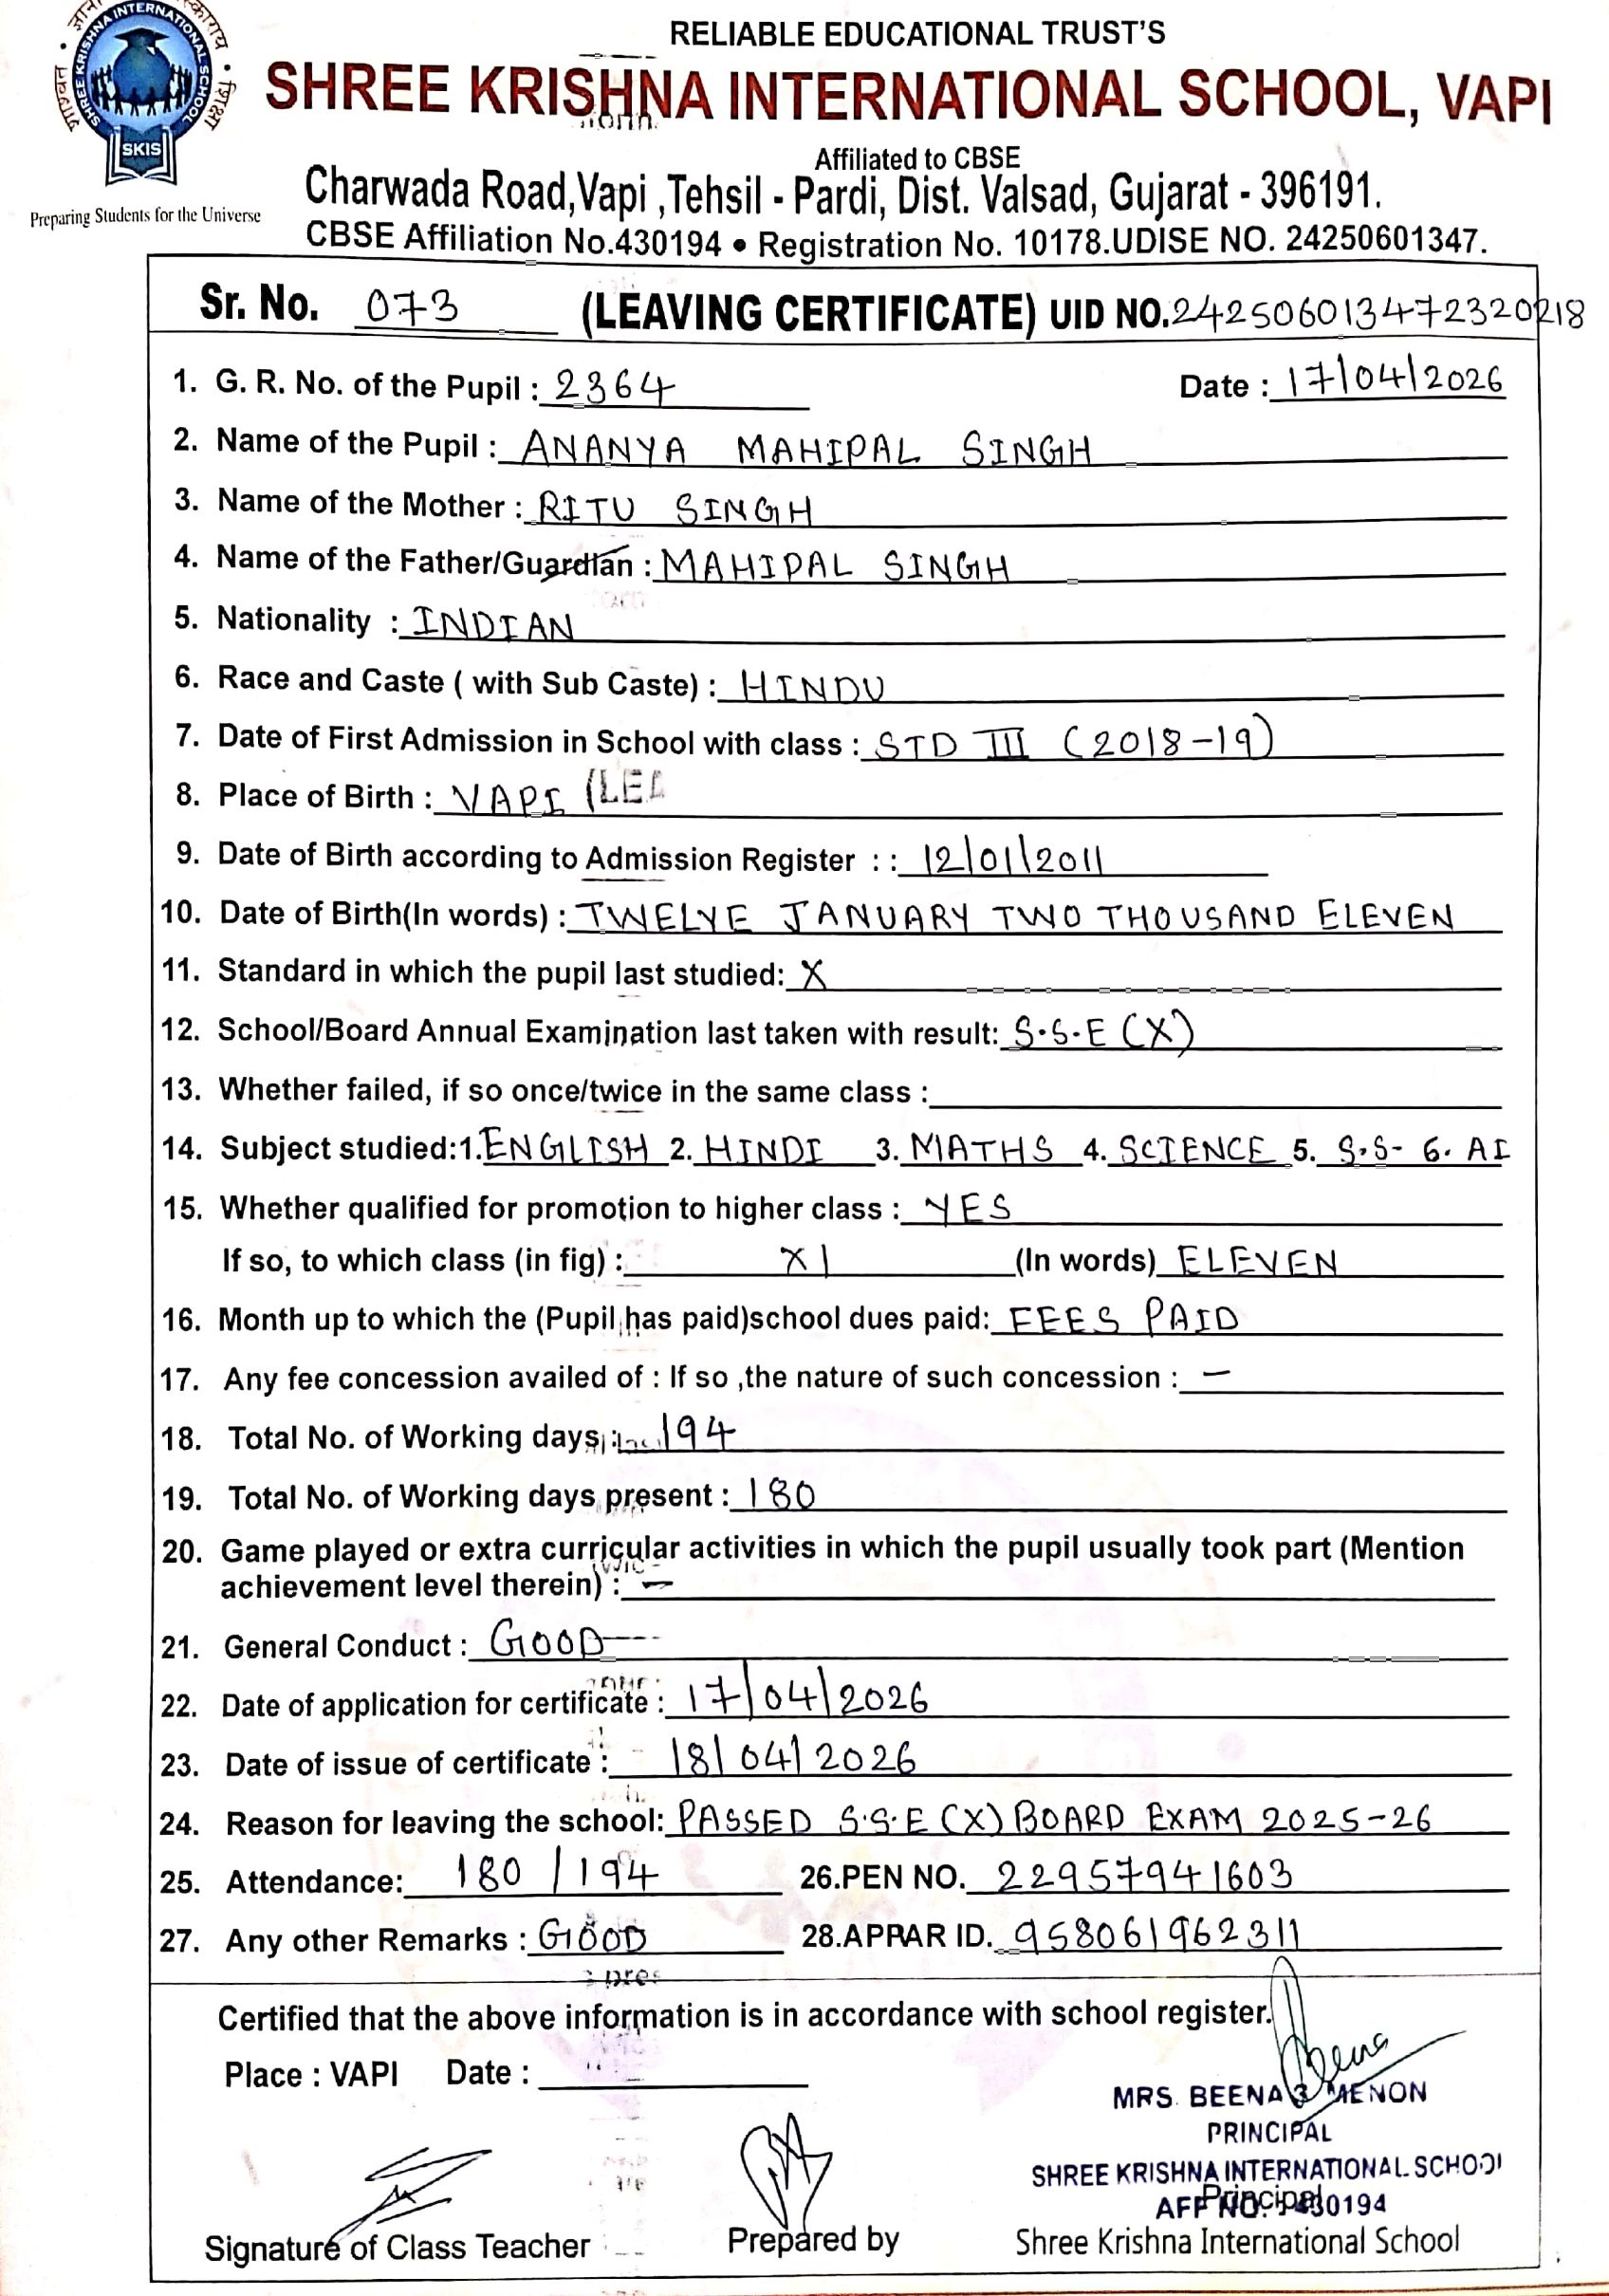 RELIABLE EDUCATIONAL TRUST'S
SHREE KRISHNA INTERNATIONAL SCHOOL, VAPI
SHREE KRISHNA INTERNATIONAL SCHOOL
SKIS
Preparing Students for the Universe
Affiliated to CBSE
Charwada Road,Vapi ,Tehsil - Pardi, Dist. Valsad, Gujarat - 396191.
CBSE Affiliation No.430194 • Registration No. 10178.UDISE NO. 24250601347.
Sr. No. 073 (LEAVING CERTIFICATE) UID NO.242506013472320218
1. G. R. No. of the Pupil : 2364 Date : 17/04/2026
2. Name of the Pupil : ANANYA MAHIPAL SINGH
3. Name of the Mother : RITU SINGH
4. Name of the Father/Guardian : MAHIPAL SINGH
5. Nationality : INDIAN
6. Race and Caste ( with Sub Caste) : HINDU
7. Date of First Admission in School with class : STD III (2018-19)
8. Place of Birth : VAPI
9. Date of Birth according to Admission Register : : 12/01/2011
10. Date of Birth(In words) : TWELVE JANUARY TWO THOUSAND ELEVEN
11. Standard in which the pupil last studied: X
12. School/Board Annual Examination last taken with result: S.S.E (X)
13. Whether failed, if so once/twice in the same class :
14. Subject studied:1.ENGLISH 2. HINDI 3. MATHS 4. SCIENCE 5. S.S- 6. AI
15. Whether qualified for promotion to higher class : YES
If so, to which class (in fig) : XI (In words) ELEVEN
16. Month up to which the (Pupil has paid)school dues paid: FEES PAID
17. Any fee concession availed of : If so ,the nature of such concession : -
18. Total No. of Working days : 194
19. Total No. of Working days present : 180
20. Game played or extra curricular activities in which the pupil usually took part (Mention
achievement level therein) : -
21. General Conduct : GOOD
22. Date of application for certificate : 17/04/2026
23. Date of issue of certificate : 18/04/2026
24. Reason for leaving the school: PASSED S.S.E (X) BOARD EXAM 2025-26
25. Attendance: 180 / 194 26.PEN NO. 22957941603
27. Any other Remarks : GOOD 28.APRAR ID. 958061962311
Certified that the above information is in accordance with school register.
Place : VAPI Date :
MRS. BEENA MENON
PRINCIPAL
SHREE KRISHNA INTERNATIONAL SCHOOL
AFF NO. 430194
Principal
Signature of Class Teacher Prepared by Shree Krishna International School